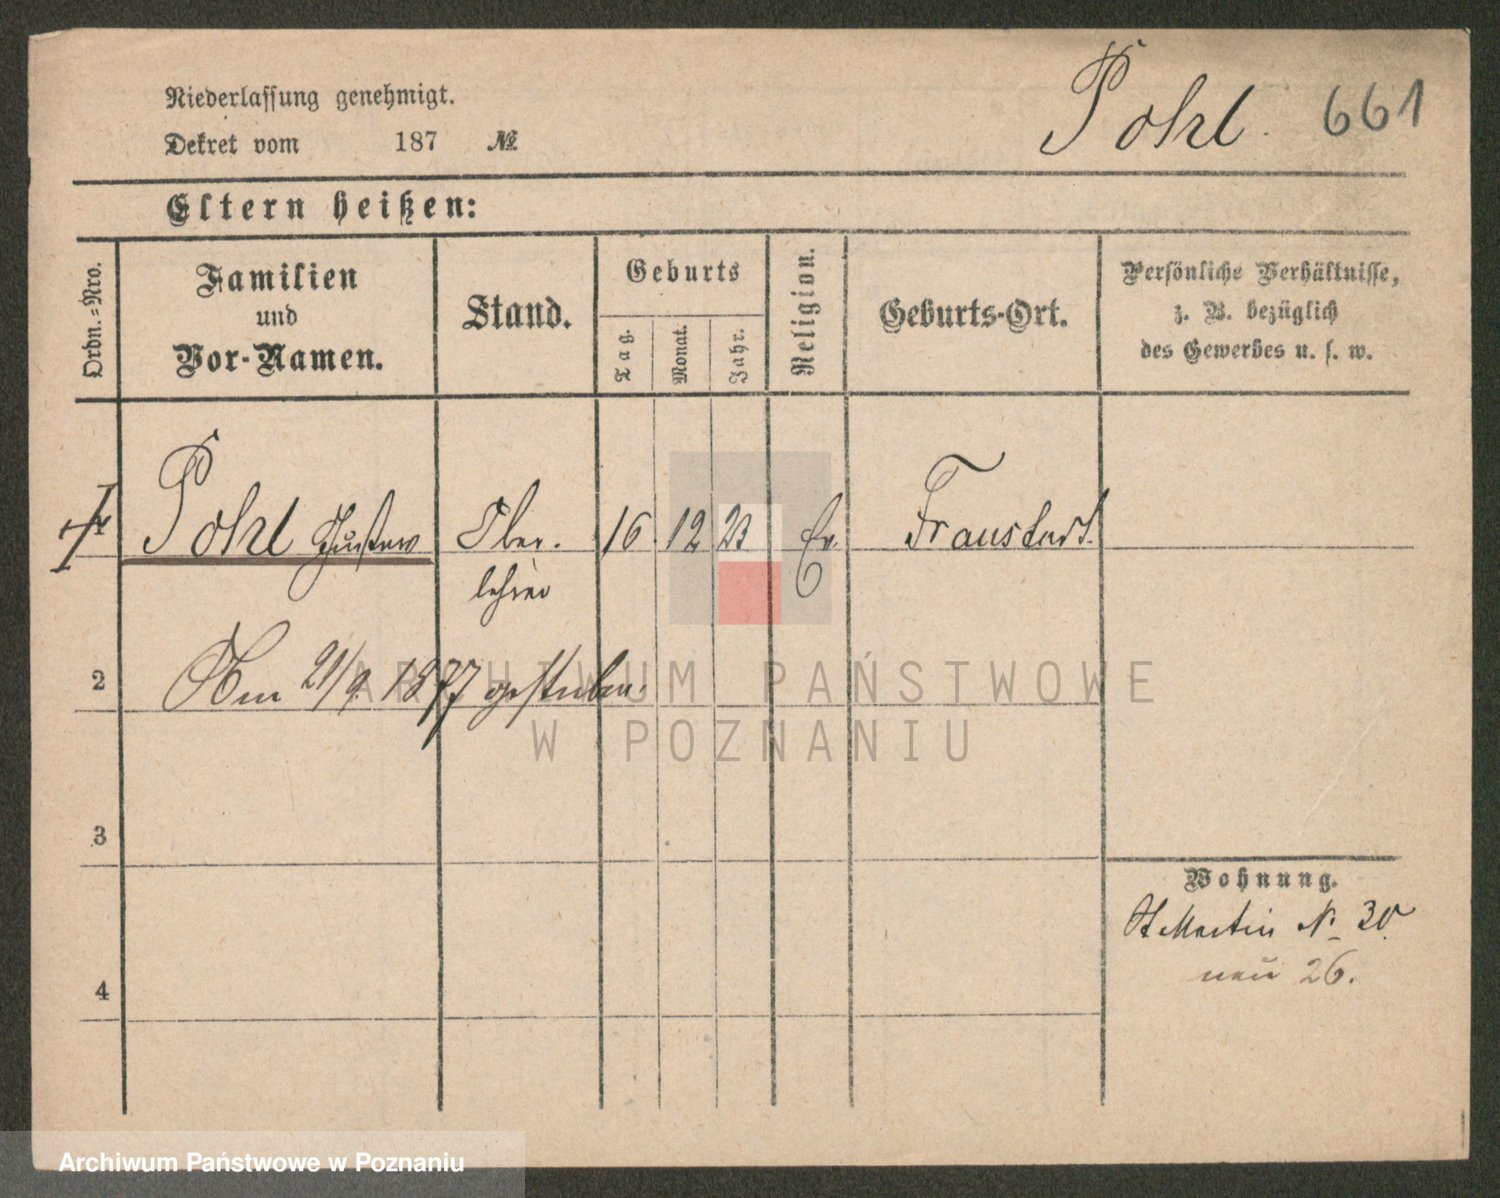 Niederlassung genehmigt.
Dekret vom 187 №
Pohl. 661
Eltern heißen:
Ordn.-Nro.
Familien
und
Vor-Namen.
Stand.
Geburts
Tag.
Monat.
Jahr.
Religion.
Geburts-Ort.
Persönliche Verhältnisse,
z. B. bezüglich
des Gewerbes u. s. w.
1 Pohl Gustav Ober- 16 12 23 Ev. Fraustadt.
lehrer
2 Am 21/9. 1877 gestorben.
3
4
Wohnung.
St Martin N. 30.
neu 26.
ARCHIWUM PAŃSTWOWE
W POZNANIU
Archiwum Państwowe w Poznaniu